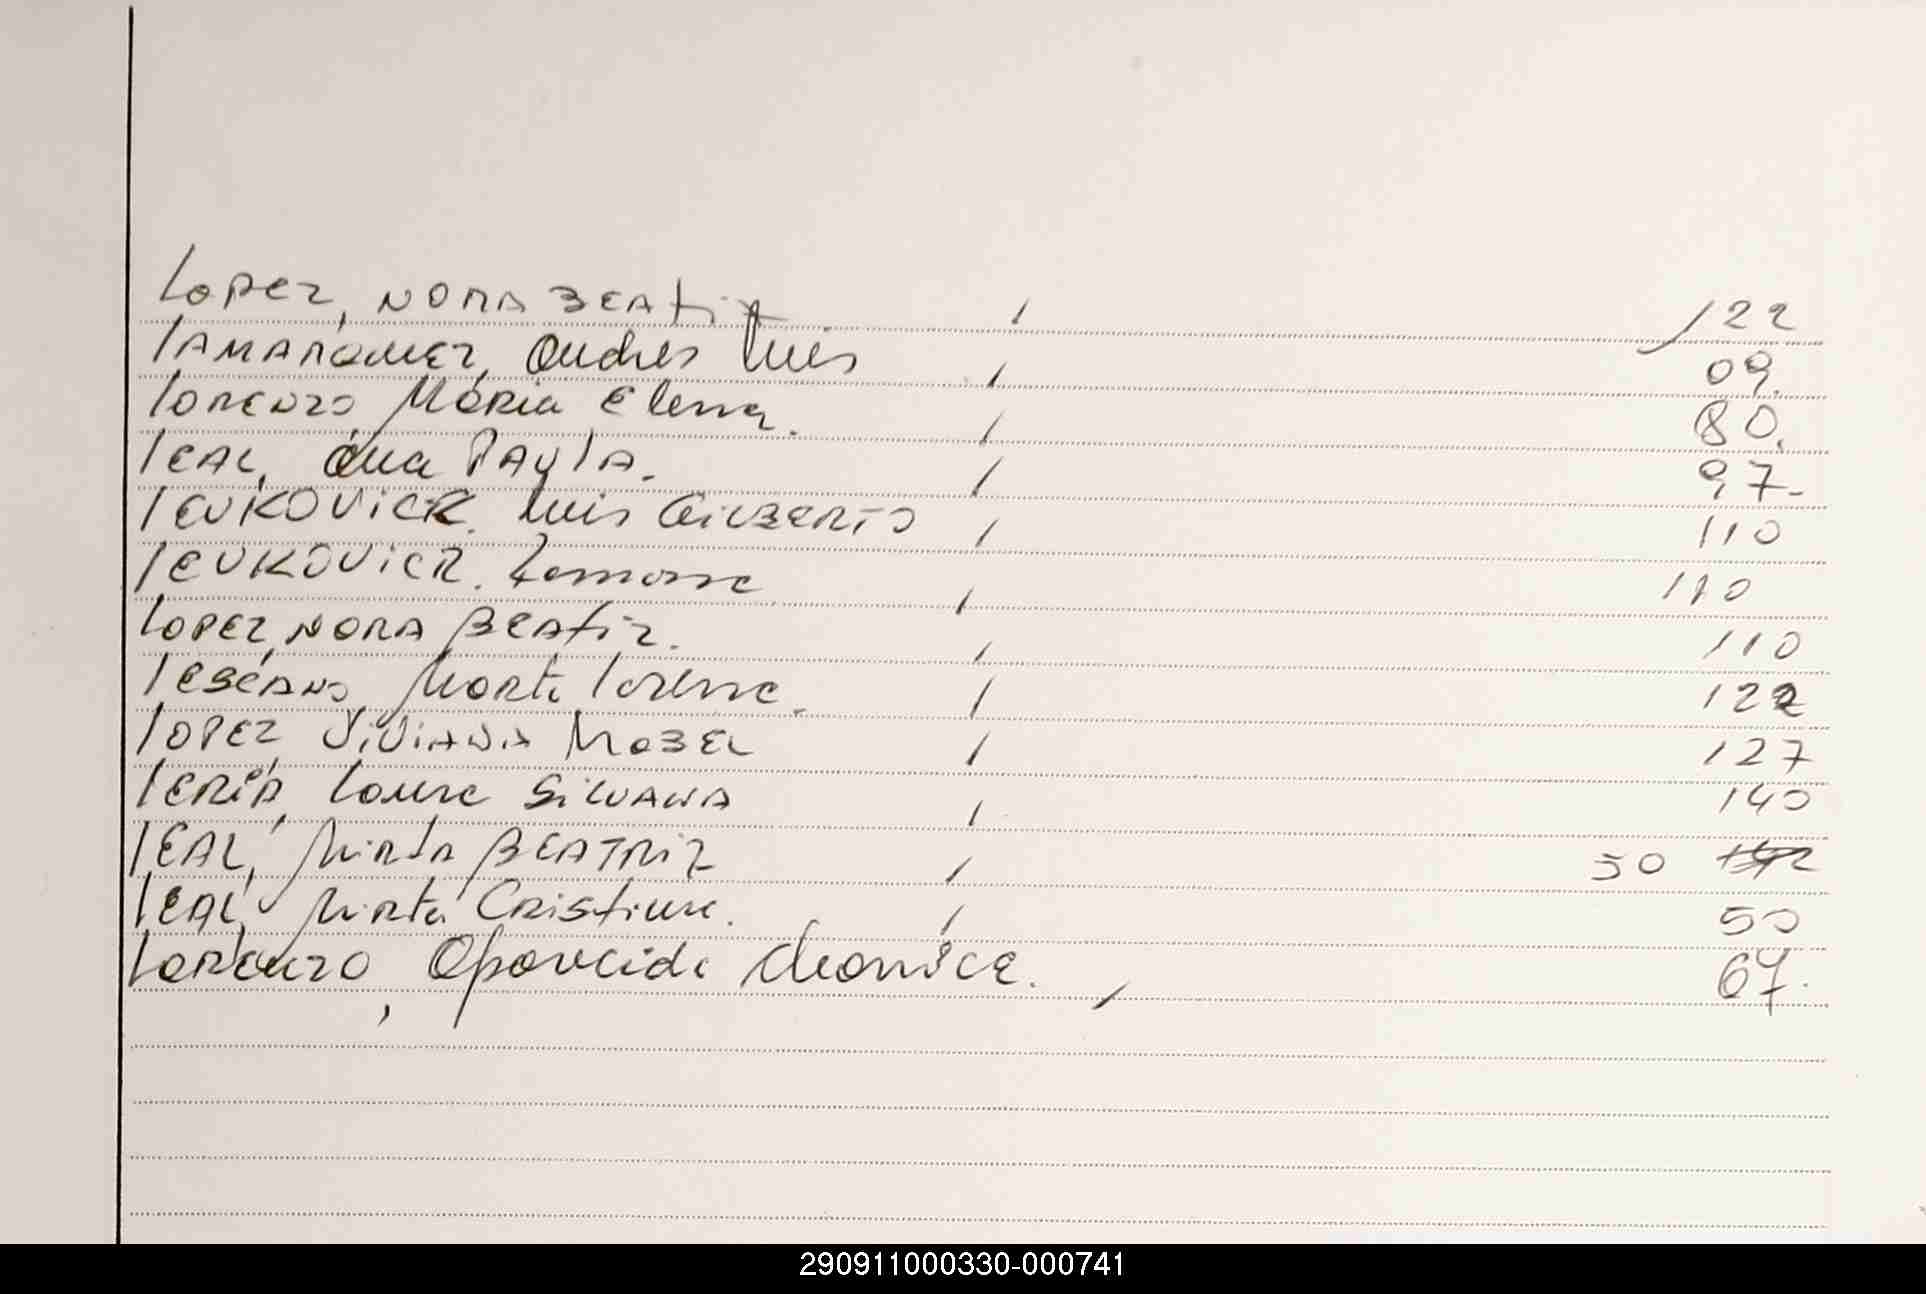 LOPEZ, NORA BEATIZ , 122
LAMARQUEZ, Andres Luis , 09.
LORENZO, Maria Elena. , 80.
LEAL, Ana PAULA. , 97-
LEVKOVICK. Luis GILBERTO , 110
LEVKOVICK. , 110
LOPEZ, NORA BEATIZ. , 110
LESCANO, Marta Lorena. , 122
LOPEZ, VIVIANA MABEL , 127
LERIA, Laura SILVANA , 140
LEAL, Mirta BEATRIZ , 50
LEAL, Mirta Cristina. , 50
LORENZO, Aparecida Cleonice. , 67.
290911000330-000741